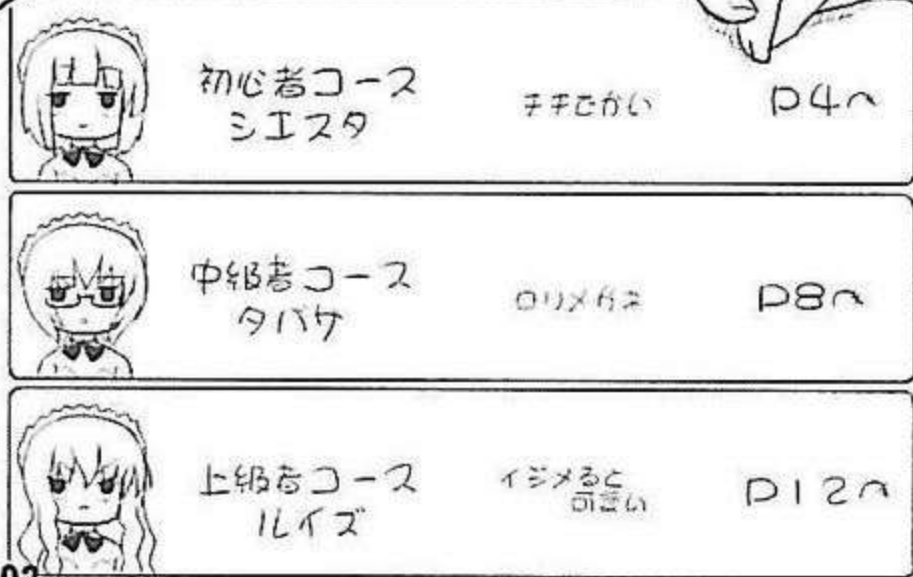 初心者コース
シエスタ
チチでかい
P4へ
中級者コース
タバサ
ロリメガネ
P8へ
上級者コース
ルイズ
イジメると
可愛い
P12へ
03